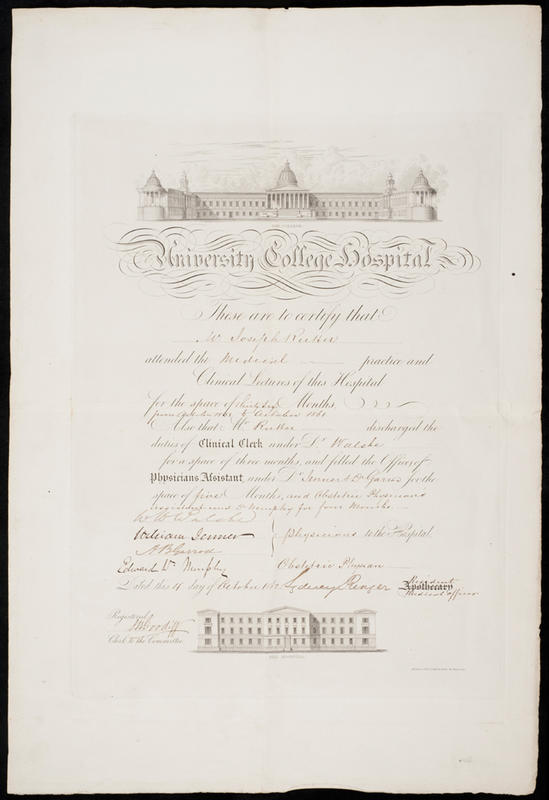 University College Hospital
These are to certify that
Mr Joseph Rutter
attended the Medical practice and
Clinical Lectures of this Hospital
for the space of Months
from October to October 1861
Also that Mr Rutter discharged the
duties of Clinical Clerk under Dr Walshe
for a space of three months, and filled the Office of
Physicians Assistant, under Dr Jenner & Dr Garrod for the
space of five Months, and Obstetric Physicians
Assistant under Dr Murphy for four Months.
W H Walshe
William Jenner Physicians to the Hospital
A B Garrod
Edward Wm Murphy Obstetric Physician
Dated this 4 day of October Sydney Ringer Apothecary
Resident
Medical Officer
Registered
Clerk to the Committee
THE HOSPITAL